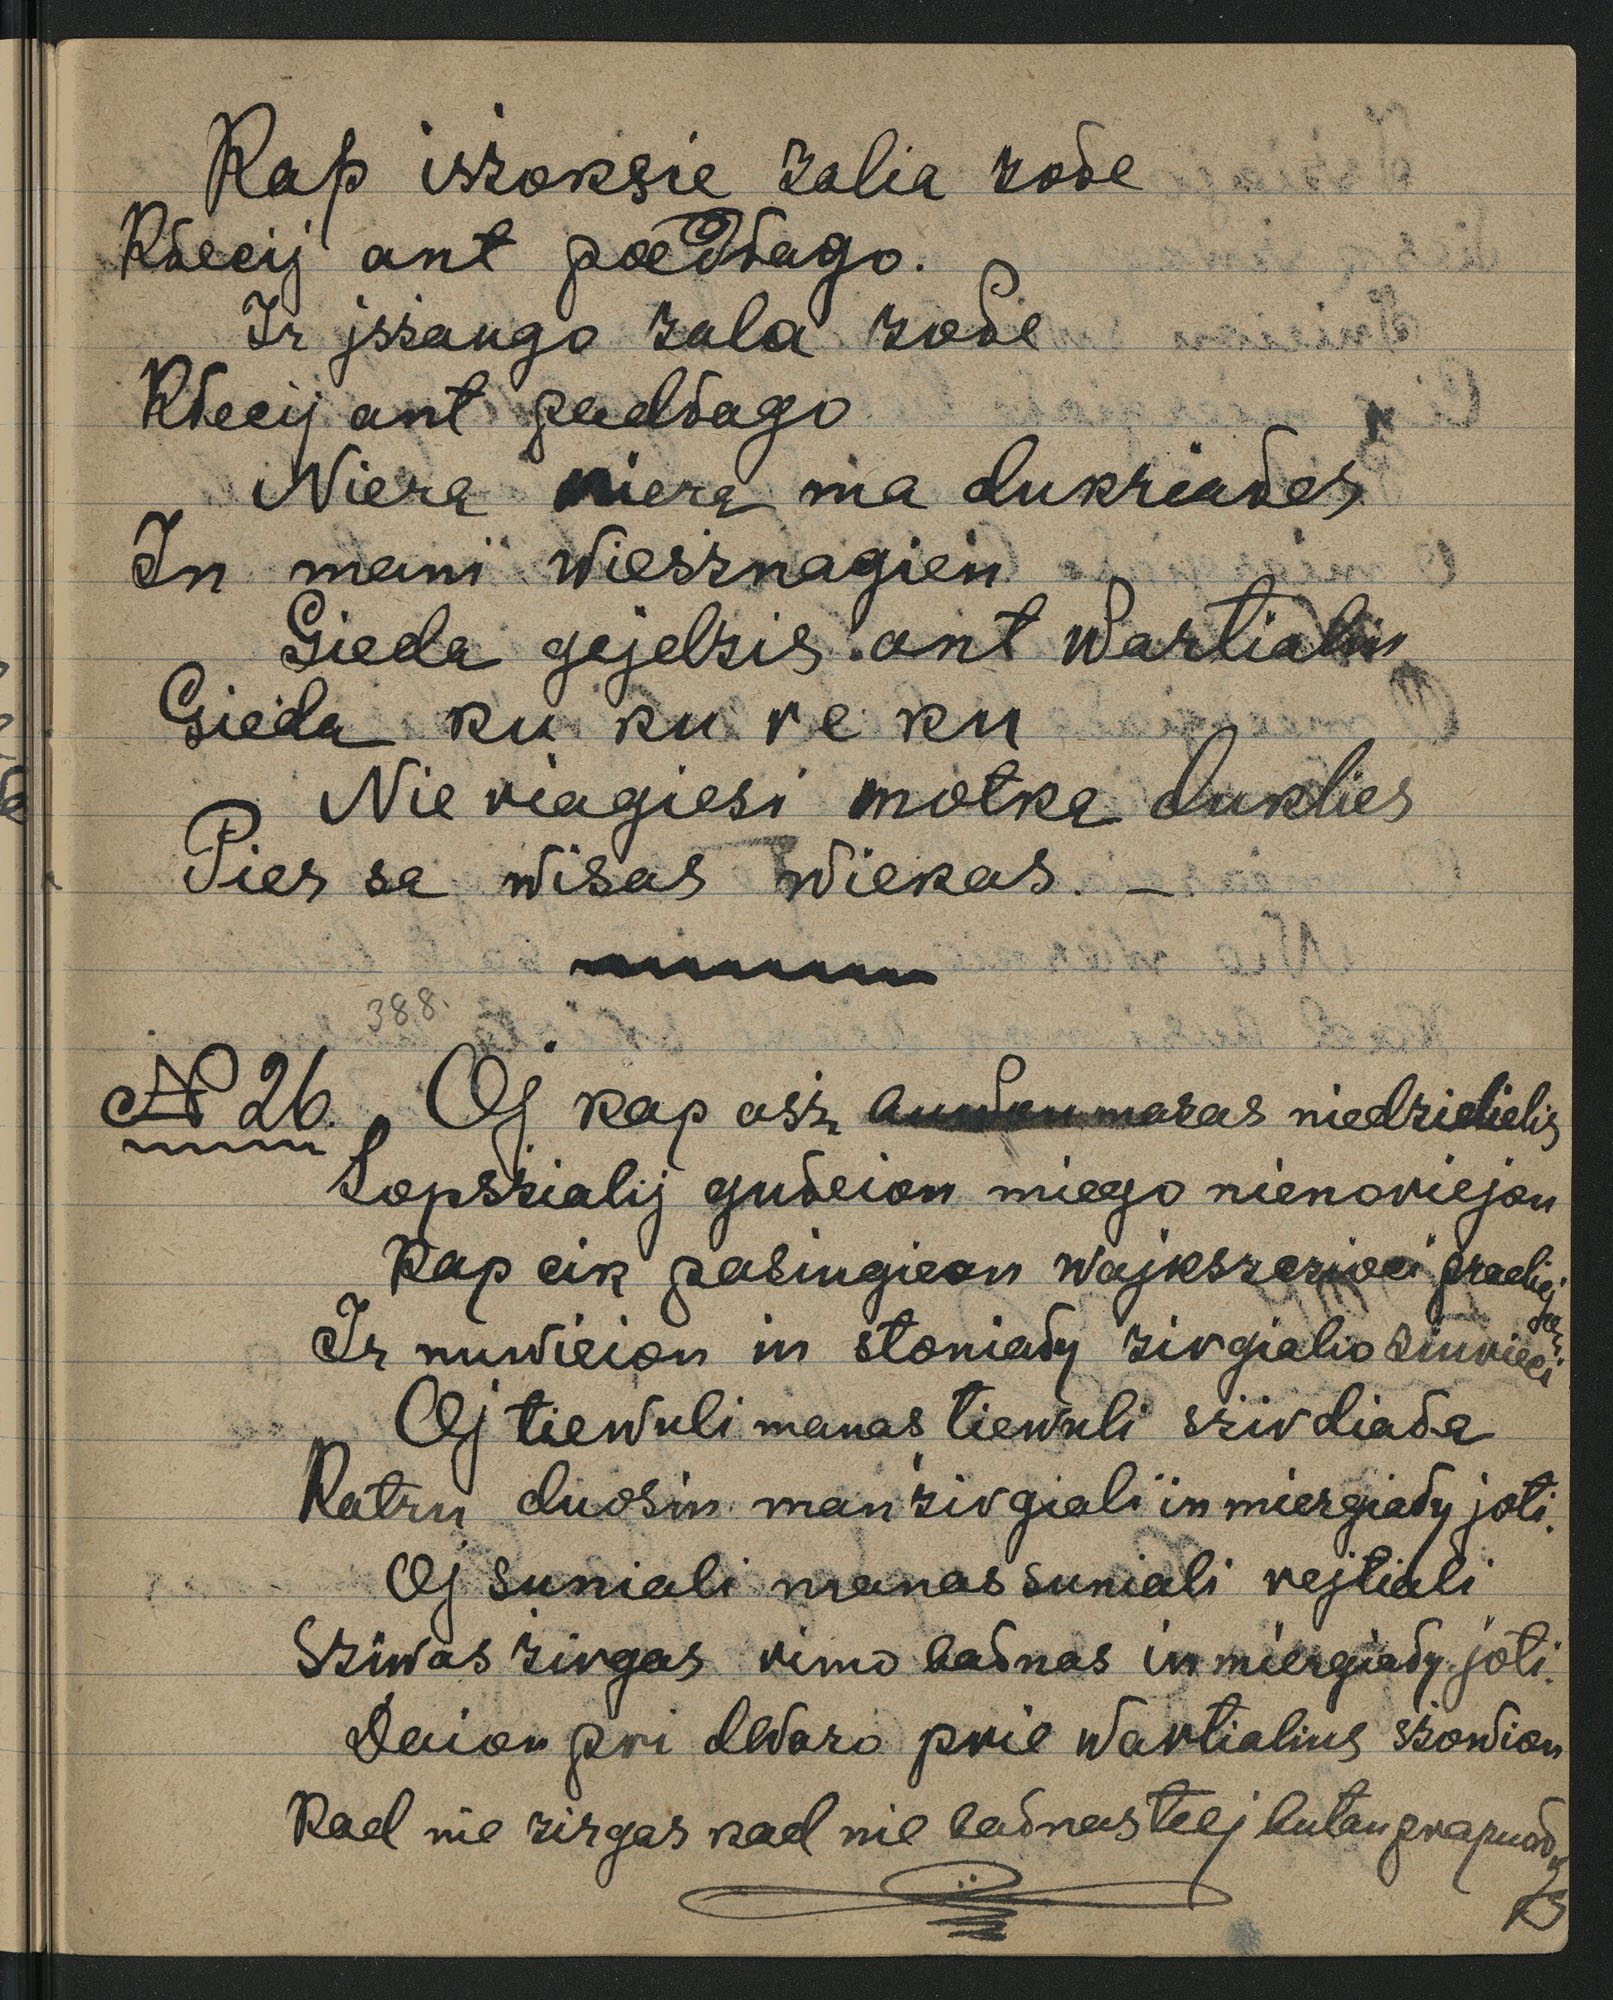 Kap iszoksie zalia zołe
Kłecij ant padłago.
Ir jszaugo zala zołe
Kłecij ant padłago
Niera niera ma dukriałes
In mani wiesznagien
Gieda gejdzis ant wartialin
Gieda ku ku re ku
Nie riagiesi motka dukłies
Pies sa wisas wiekas. —
388.
№ 26. Oj kap asz mazas niedzielelis
Łopszialij gułeion miego nienoriejou
Kap cik pasingieon wajkszczioci pradiejau
Ir nuwieion in stoniały zirgialio ziurieci
Oj tiewuli manas tiewuli szirdiała
Katru duosin man zirgiali in miergiały joti.
Oj suniali manas suniali rejtiali
Sziwas zirgas rimo bałnas in miergiały joti.
Daion pri dwaro prie wartialius szowion
Kad nie zirgas kad nie bałnas teej butau